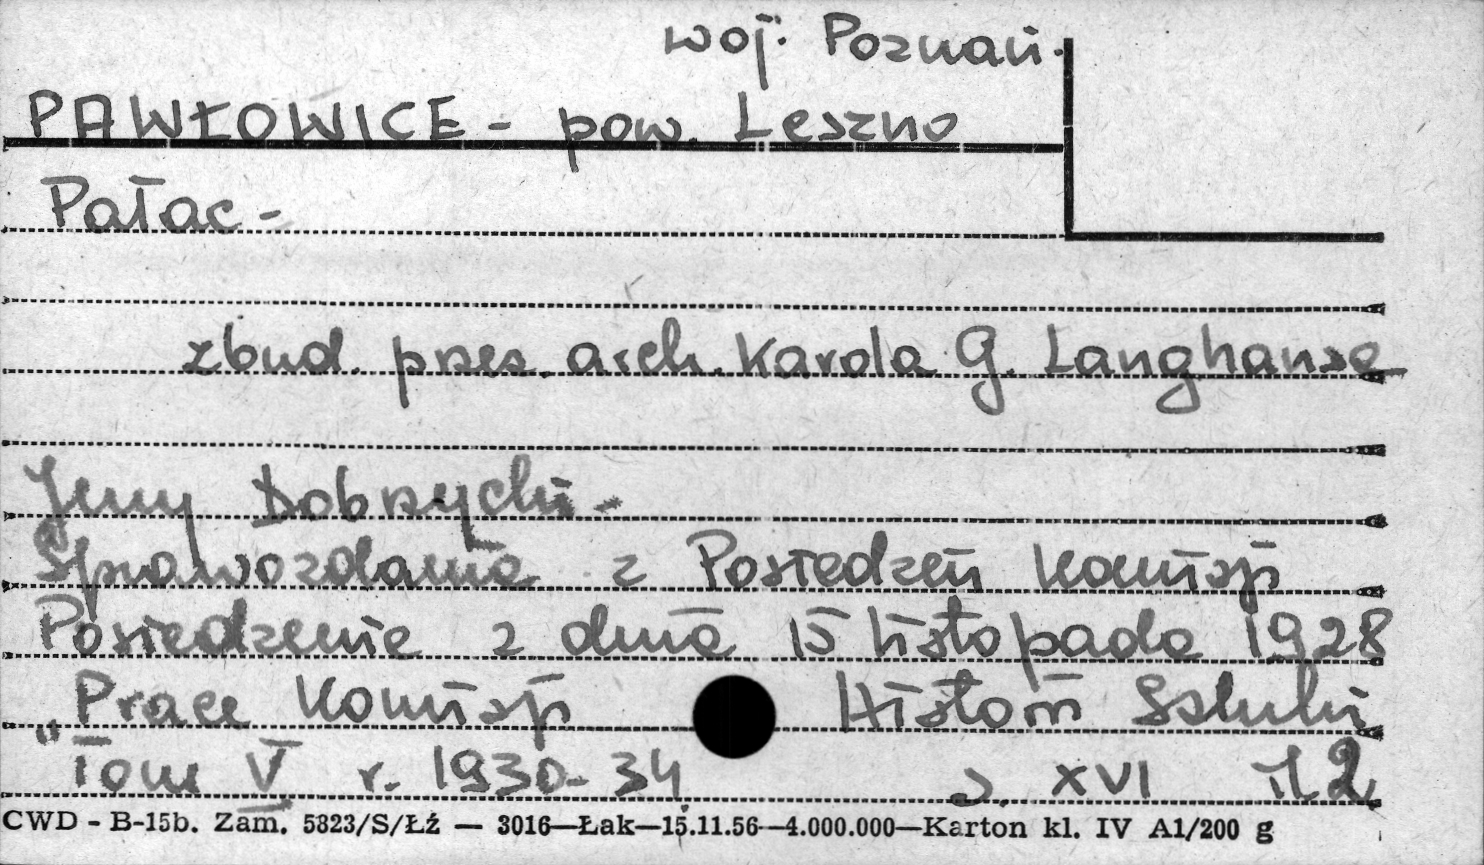 woj. Poznań.
PAWŁOWICE - pow. Leszno
Pałac -
zbud. przez arch. Karola G. Langhansa
Jerzy Dobrzycki -
Sprawozdania z Posiedzeń Komisji
Posiedzenie z dnia 15 listopada 1928
„Prace Komisji Historii Sztuki
Tom V r. 1930-34 s. XVI il. 2
CWD - B-15b. Zam. 5323/S/Łź — 3016—Łak—15.11.56—4.000.000—Karton kl. IV A1/200 g